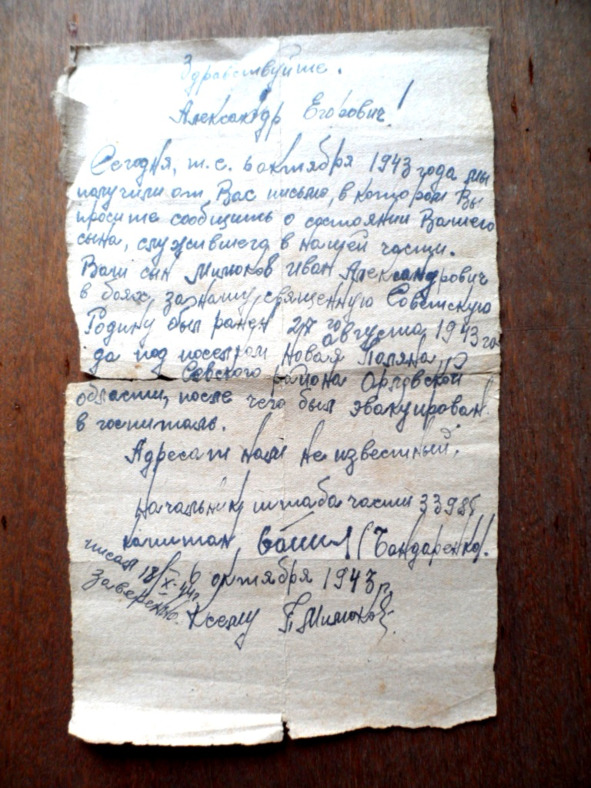 Здравствуйте.
Александр Егорович!
Сегодня, т.е. 6 октября 1943 года мы
получили от Вас письмо, в котором Вы
просите сообщить о состоянии Вашего
сына, служившего в нашей части.
Ваш сын Милюков Иван Александрович
в боях, за нашу священную Советскую
Родину был ранен 27го августа 1943 го-
да под поселком Новая Поляна
Севского района Орловской
области, после чего был эвакуирован
в госпиталь.
Адресат нам не известный.
Начальник штаба части 33985
капитан (Бондаренко).
6 октября 1943 г.
писал 18/X-44г.
Заверено.
К сему П. Милюков